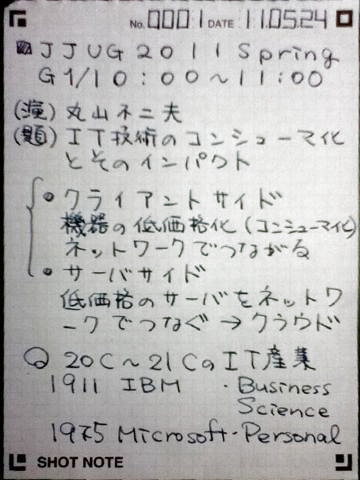 No. 0001 DATE 11.05.24
JJUG 2011 Spring
G1/10:00〜11:00
(演) 丸山不二夫
(題) IT技術のコンシューマ化
とそのインパクト
• クライアントサイド
機器の低価格化(コンシューマイヒ)
ネットワークでつながる
• サーバサイド
低価格のサーバをネットワ
ークでつなぐ → クラウド
20C〜21CのIT産業
1911 IBM ・Business
Science
1975 Microsoft・Personal
SHOT NOTE